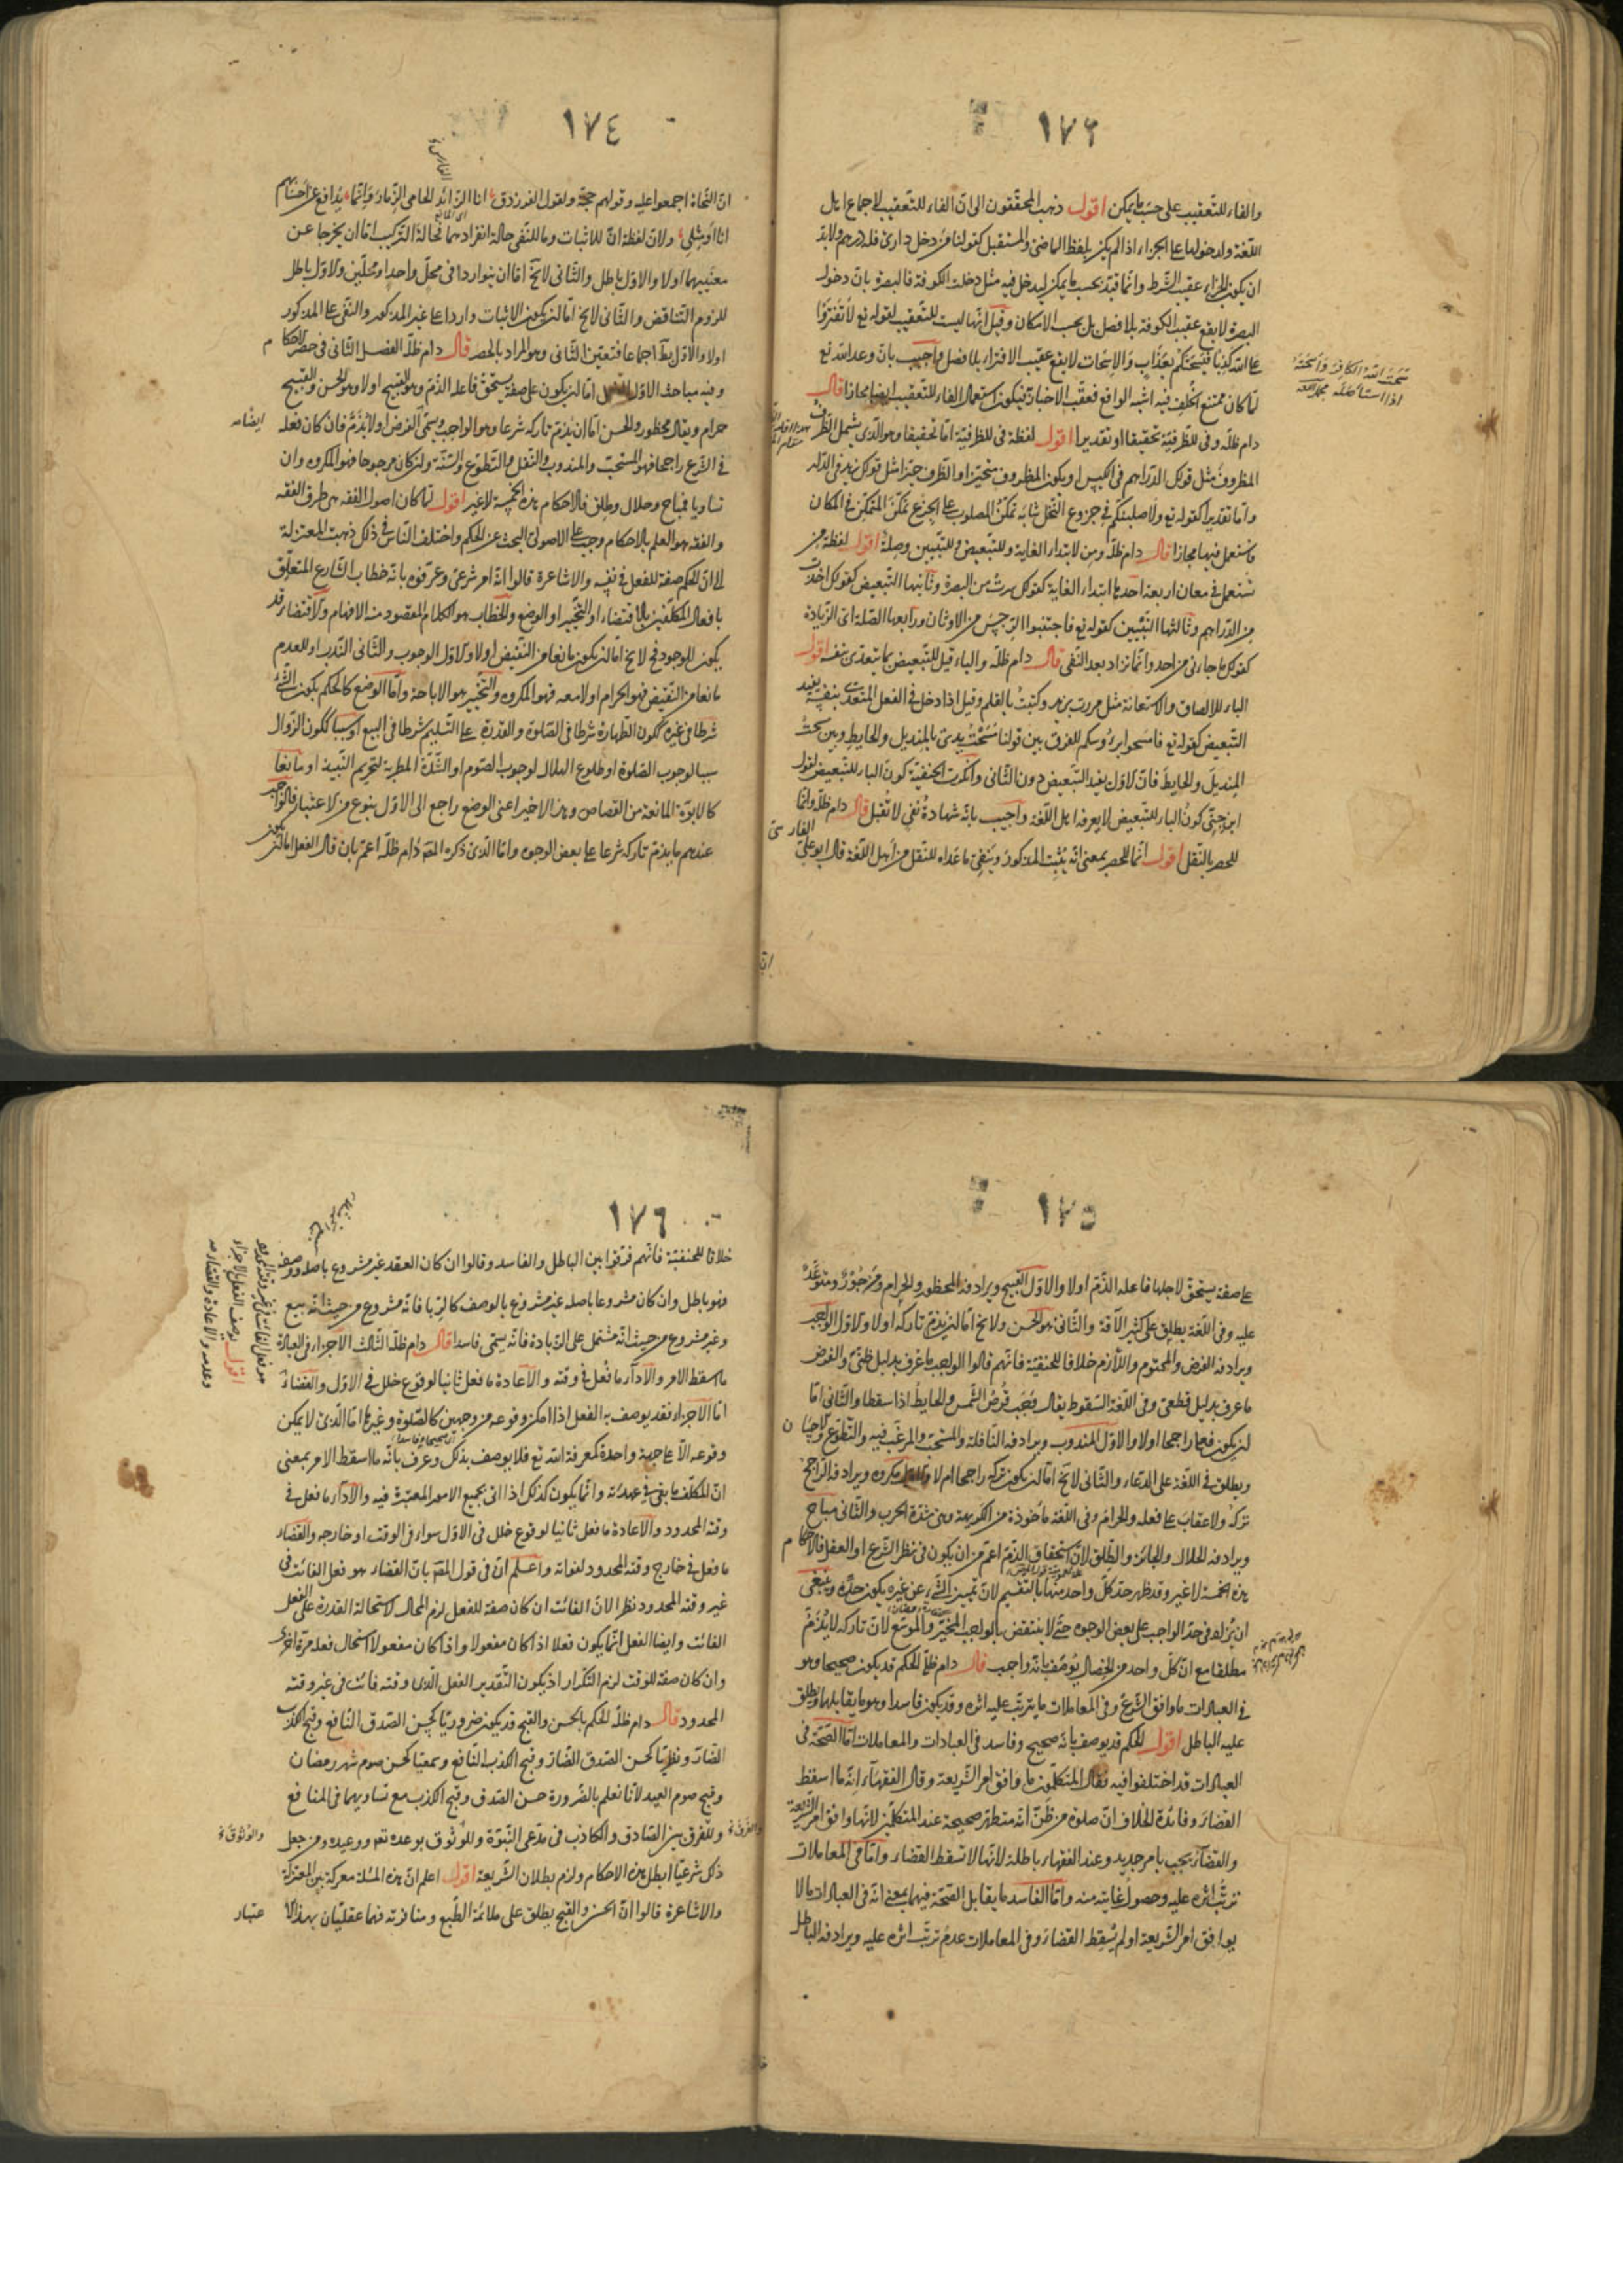 ١٧٣
والفاء للتعقيب على حسب ما يمكن اقول ذهب المحققون الى ان الفاء للتعقيب لاجماع اهل
اللغة ولدخولها على الجزاء اذا لم يكن بلفظ الماضي والمستقبل كقولنا من دخل داري فله درهم ولا بد
ان يكون الجزاء عقيب الشرط وانما قيد بحسب ما يمكن ليدخل فيه مثل دخلت الكوفة فالبصرة بان دخول
البصرة لا يقع عقيب الكوفة بلا فصل بل بحسب الامكان وقيل انها ليست للتعقيب لقوله تع لا تفتروا
على الله كذبا فيسحتكم بعذاب والاسحات لا يقع عقيب الافتراء بلا فصل واجيب بان وعد الله تع
لما كان ممتنع الخلف فيه اشبه الواقع فعقب الاخبار به فيكون استعمال الفاء للتعقيب ايضا مجازا قال
دام ظله وفي للظرفية تحقيقا او تقديرا اقول لفظة في للظرفية اما تحقيقا وهو الذي يشمل الظرف
المظروف مثل قولك الدراهم في الكيس او يكون المظروف متحيزا والظرف حيزا مثل قولك زيد في الدار
واما تقديرا كقوله تع ولاصلبنكم في جذوع النخل شابه تمكن المصلوب على الجذع تمكن المتمكن في المكان
فاستعمل فيها مجازا قال دام ظله ومن لابتداء الغاية وللتبعيض وللتبيين وصلة اقول لفظة من
تستعمل في معان اربعة احدها ابتداء الغاية كقولك سرت من البصرة وثانيها التبعيض كقولك اخذت
من الدراهم وثالثها التبيين كقوله تع فاجتنبوا الرجس من الاوثان ورابعها الصلة اى الزيادة
كقولك ما جاءني من احد وانما تزاد بعد النفي قال دام ظله والباء قيل للتبعيض فيما يتعدى بنفسه اقول
الباء للالصاق والاستعانة مثل مررت بزيد وكتبت بالقلم وقيل اذا دخل في الفعل المتعدى بنفسه يفيد
التبعيض كقوله تع فامسحوا برؤسكم للفرق بين قولنا مسحت يدى بالمنديل والحايط وبين مسحت
المنديل والحايط فان الاول يفيد التبعيض دون الثاني وانكرت الحنفية كون الباء للتبعيض لقول
ابن جني كون الباء للتبعيض لا يعرفه اهل اللغة واجيب بانه شهادة نفي لا تقبل قال دام ظله وانما
للحصر بالنقل اقول انما للحصر بمعنى انه يثبت المذكور وينفي ما عداه للنقل من اهل اللغة قال ابو علي
الفارسي
سحت الله الكافر واسحته
اذا استاصله
ان
١٧٤
ان النحاة اجمعوا عليه وقولهم حجة ولقول الفرزدق انا الزائد الحامي الذمار وانما يدافع عن احسابهم
انا او مثلي ولان لفظة ان للاثبات وما للنفي حالة انفرادهما فحالة التركيب اما ان يخرجا عن
معنييهما اولا والاول باطل والثاني لا يخ اما ان يتواردا في محل واحد او محلين والاول باطل
للزوم التناقض والثاني لا يخ اما ان يكون الاثبات واردا على غير المذكور والنفي على المذكور
اولا والاول بط اجماعا فتعين الثاني وهو المراد بالحصر قال دام ظله الفصل الثاني في حصر الاحكام
وفيه مباحث الاول الفعل اما ان يكون على صفة يستحق فاعله الذم وهو القبيح اولا وهو الحسن والقبيح
حرام ويقال محظور والحسن اما ان يذم تاركه شرعا وهو الواجب ويسمى الفرض اولا يذم فان كان فعله
في الشرع راجحا فهو المستحب والمندوب والنفل والتطوع والسنة وان كان مرجوحا فهو المكروه وان
تساويا فمباح وحلال وطلق فالاحكام هذه الخمسة لا غير اقول لما كان اصول الفقه هي طرق الفقه
والفقه هو العلم بالاحكام وجب على الاصولي البحث عن الحكم واختلف الناس في ذلك ذهبت المعتزلة
الى ان الحكم صفة للفعل في نفسه والاشاعرة قالوا انه امر شرعي وعرفوه بانه خطاب الشارع المتعلق
بافعال المكلفين بالاقتضاء او التخيير او الوضع والخطاب هو الكلام المقصود منه الافهام والاقتضاء قد
يكون للوجود فح لا يخ اما ان يكون مانعا من النقيض اولا والاول الوجوب والثاني الندب او للعدم
مانعا من النقيض فهو الحرام اولا معه فهو المكروه والتخيير هو الاباحة واما الوضع كالحكم بكون الشئ
شرطا في غيره ككون الطهارة شرطا في الصلوة والقدرة على التسليم شرطا في البيع او سببا ككون الزوال
سببا لوجوب الصلوة او طلوع الهلال لوجوب الصوم او الشدة المطربة لتحريم النبيذ او مانعا
كالابوة المانعة من القصاص وهذا الاخير اعنى الوضع راجع الى الاول بنوع من الاعتبار فالواجب
عندهم ما يذم تاركه شرعا على بعض الوجوه واما الذى ذكره المصم دام ظله اعم بان قال الفعل اما ان يكون
١٧٥
على صفة يستحق لاجلها فاعله الذم اولا والاول القبيح ويرادفه المحظور والحرام ومزجور ومتوعد
عليه وفي اللغة يطلق على كثير الآفة والثاني هو الحسن ولا يخ اما ان يذم تاركه اولا والاول الواجب
ويرادفه الفرض والمحتوم واللازم خلافا للحنفية فانهم قالوا الواجب ما عرف بدليل ظني والفرض
ما عرف بدليل قطعي وفي اللغة السقوط يقال وجب قرص الشمس والحايط اذا سقطا والثاني اما
ان يكون فعله راجحا اولا والاول المندوب ويرادفه النافلة والمستحب والمرغب فيه والتطوع والاحسان
ويطلق في اللغة على الدعاء والثاني لا يخ اما ان يكون تركه راجحا ام لا والاول مكروه ويرادفه الراجح
تركه ولا عقاب على فعله والحرام وفي اللغة ماخوذة من الكريهة وهي شدة الحرب والثاني مباح
ويرادفه الحلال والجائز والطلق لان استحقاق الذم اعم من ان يكون في نظر الشرع او العقل فالاحكام
هذه الخمسة لا غير وقد ظهر حد كل واحد منها بالتقسيم لان تمييز الشئ عن غيره يكون حده وينبغي
ان يزاد في حد الواجب على بعض الوجوه حتى لا ينتقض بالواجب المخير والموسع لان تاركه لا يذم
مطلقا مع ان كل واحد من الخصال يوصف بانه واجب قال دام ظله الحكم قد يكون صحيحا وهو
في العبادات ما وافق الشرع وفي المعاملات ما يترتب عليه اثره وقد يكون فاسدا وهو ما يقابلها ويطلق
عليه الباطل اقول الحكم قد يوصف بانه صحيح وفاسد في العبادات والمعاملات اما الصحة في
العبادات قد اختلفوا فيه فقال المتكلمون ما وافق امر الشريعة وقال الفقهاء انه ما اسقط
القضاء وفائدة الخلاف ان صلوة من ظن انه متطهر صحيحة عند المتكلمين لانها وافق امر الشريعة
والقضاء يجب بامر جديد وعند الفقهاء باطلة لانها لا تسقط القضاء واما في المعاملات
ترتب اثره عليه وحصول غايته منه واما الفاسد ما يقابل الصحة فيهما بمعنى انه في العبادات ما لا
يوافق امر الشريعة او لم يسقط القضاء وفي المعاملات عدم ترتب اثره عليه ويرادفه الباطل
١٧٦
خلافا للحنفية فانهم فرقوا بين الباطل والفاسد وقالوا ان كان العقد غير مشروع باصله ووصفه
فهو باطل وان كان مشروعا باصله غير مشروع بالوصف كالربا فانه مشروع من حيث انه بيع
وغير مشروع من حيث انه مشتمل على الزيادة فانه يسمى فاسدا قال دام ظله الثالث الاجزاء في العبادة
ما اسقط الامر والاداء ما فعل في وقته والاعادة ما فعل ثانيا لوقوع خلل في الاول والقضاء
اما الاجزاء فقد يوصف به الفعل اذا امكن وقوعه من وجهين كالصلوة وغيرها اما الذى لا يمكن
وقوعه الا على جهة واحدة كمعرفة الله تع فلا يوصف بذلك وعرف بانه ما اسقط الامر بمعنى
ان المكلف ما بقي في عهدته وانما يكون كذلك اذا اتى بجميع الامور المعتبرة فيه والاداء ما فعل في
وقته المحدود والاعادة ما فعل ثانيا لوقوع خلل في الاول سواء في الوقت او خارجه والقضاء
ما فعل في خارج وقته المحدود لفواته واعلم ان في قول المصم بان القضاء هو فعل الفائت في
غير وقته المحدود نظرا لان الفائت ان كان صفة للفعل لزم المحال لاستحالة القدرة على الفعل
الفائت وايضا الفعل انما يكون فعلا اذا كان مفعولا واذا كان مفعولا استحال فعله مرة اخرى
وان كان صفة للوقت لزم التكرار اذ يكون التقدير الفعل الذى وقته فائت في غير وقته
المحدود قال دام ظله الحكم بالحسن والقبح قد يكون ضروريا كحسن الصدق النافع وقبح الكذب
الضار ونظريا كحسن الصدق الضار وقبح الكذب النافع وسمعيا كحسن صوم شهر رمضان
وقبح صوم العيد لانا نعلم بالضرورة حسن الصدق وقبح الكذب مع تساويهما في المنافع
وللفرق بين الصادق والكاذب في مدعى النبوة وللوثوق بوعده تع ووعيده ومن جعل
ذلك شرعيا ابطل هذه الاحكام ولزم بطلان الشريعة اقول اعلم ان هذه المسئلة معركة بين المعتزلة
والاشاعرة قالوا ان الحسن والقبح يطلق على ملائمة الطبع ومنافرته فهما عقليان بهذا الاعتبار